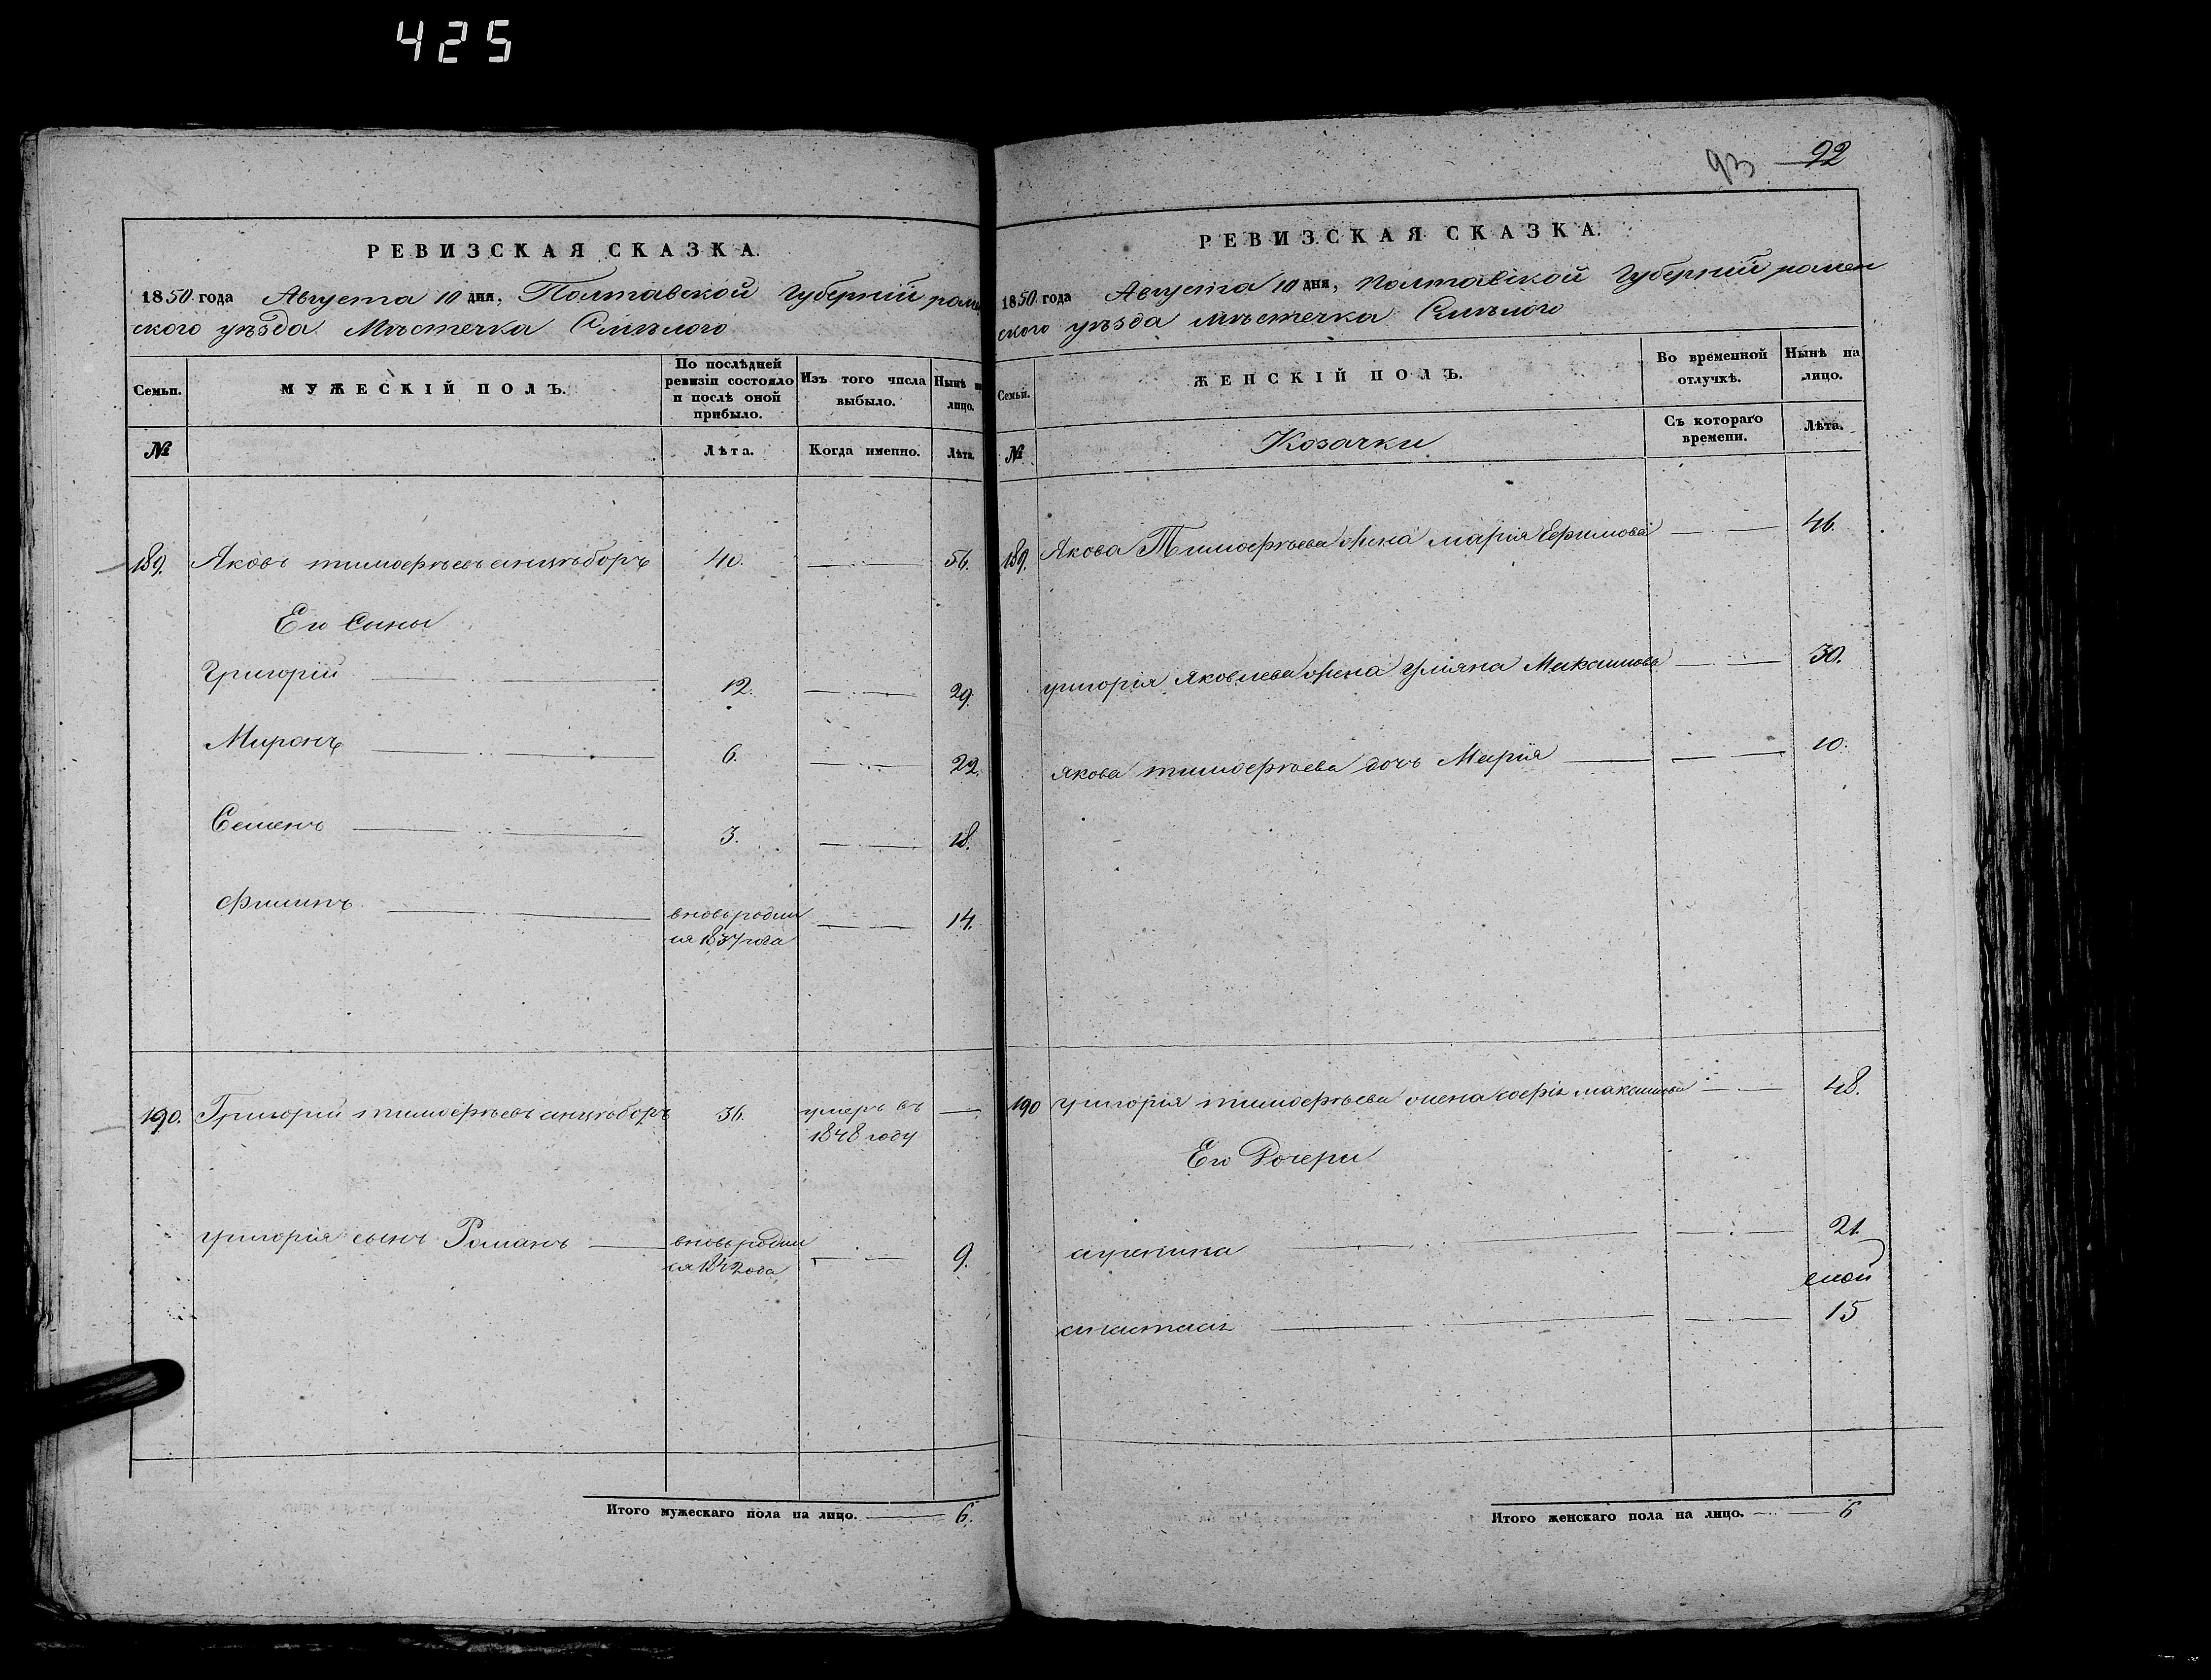 425
93 92
РЕВИЗСКАЯ СКАЗКА.
1850 года Августа 10 дня, Полтавской Губерніи ромен
ского уѣзда Мѣстечка Смѣлого
Семьи. МУЖЕСКІЙ ПОЛЪ. По послѣдней ревизіи состояло и послѣ оной прибыло. Изъ того числа выбыло. Нынѣ на лицо.
№ Лѣта. Когда именно. Лѣта.
189. Яковъ тимофѣевъ 40. 56.
Его Сыны
Григорій 12. 29.
Миронъ 6. 22.
Семенъ 3. 18.
Филипъ вновь родил 14.
ся 1837 года
190. Григорій тимофѣевъ 36. умеръ въ
1848 году
григорія сынъ Романъ вновь родил 9.
ся 1842 года
Итого мужескаго пола на лицо. 6.
РЕВИЗСКАЯ СКАЗКА.
1850 года Августа 10 дня, Полтавской Губерніи ромен
ского уѣзда мѣстечка Смѣлого
Семьи. ЖЕНСКІЙ ПОЛЪ. Во временной отлучкѣ. Нынѣ на лицо.
№ Козачки Съ котораго времени. Лѣта.
189. Якова Тимофѣева жена марія Ефимова 46.
григорія Яковлева жена уліяна Максимова 30.
якова тимофѣева дочь Марія 10.
190 григорія тимофѣева жена софія максимова 48.
Его Дочери
21
15
Итого женскаго пола на лицо. 6